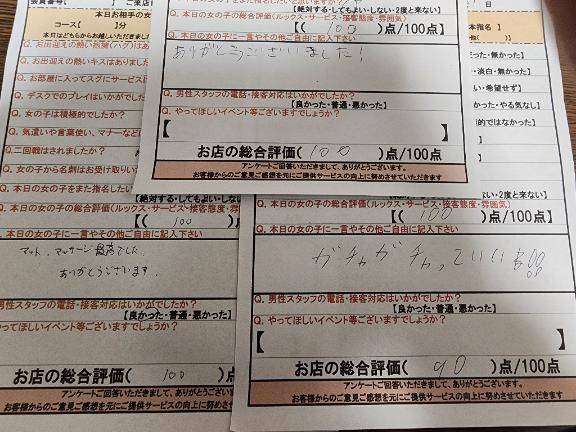 本日お相手の女
コース【 】分
本日はどちらからお越しいただきました
Q. お出迎えの熱い抱擁(ハグ)はあ
Q. お出迎えの熱いキスはありまし
Q. お部屋に入ってスグにサービスに
Q. デスクでのプレイはいかがでし
Q. 女の子は積極的でしたか?
Q. 気遣いや言葉使い、マナーなど
Q. 二回戦はされましたか?
Q. 女の子から名刺はお受け取りい
Q. 本日の女の子をまた指名した
【絶対する・してもよい
Q. 本日の女の子の総合評価(ルックス・サービス・接客態度・雰
【( 100
Q. 本日の女の子に一言やその他ご自由に記入下さい
マット、マッサージ最高でした。
ありがとうございます。
男性スタッフの電話・接客対応はいかがでしたか?
【良かった・普通・悪かった】
Q. やってほしいイベント等ございますでしょうか?
お店の総合評価( 100 )点
アンケートご回答いただきまして、ありがとうございます。
お客様からのご意見ご感想を元にご提供サービスの向上に努めさせ
【絶対する・してもよい・しない・2度と来ない】
Q. 本日の女の子の総合評価(ルックス・サービス・接客態度・雰囲気)
【( 100 )点/100点
Q. 本日の女の子に一言やその他ご自由に記入下さい
ありがとうございました!
Q. 男性スタッフの電話・接客対応はいかがでしたか?
【良かった・普通・悪かった】
Q. やってほしいイベント等ございますでしょうか?
【 】
お店の総合評価( 100 )点/100点
アンケートご回答いただきまして、ありがとうございます。
お客様からのご意見ご感想を元にご提供サービスの向上に努めさせていただきます
本指名】
った・無かった】
・淡白・無かった】
い・希望せず】
かった・やる気なし】
的ではなかった】
い・2度と来ない】
Q. 本日の女の子の総合評価(ルックス・サービス・接客態度・雰囲気)
【( 100 )点/100点】
Q. 本日の女の子に一言やその他ご自由に記入下さい
ガチャガチャっていい!!
Q. 男性スタッフの電話・接客対応はいかがでしたか?
【良かった・普通・悪かった】
Q. やってほしいイベント等ございますでしょうか?
【 】
お店の総合評価( 90 )点/100点
アンケートご回答いただきまして、ありがとうございます。
お客様からのご意見ご感想を元にご提供サービスの向上に努めさせていた